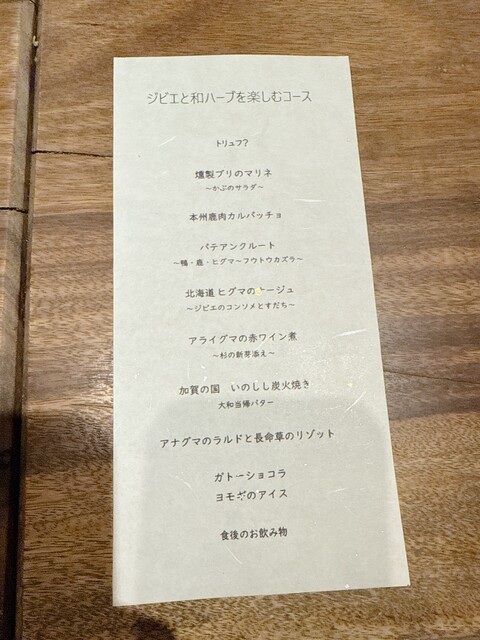 ジビエと和ハーブを楽しむコース
トリュフ?
燻製ブリのマリネ
～かぶのサラダ～
本州鹿肉カルパッチョ
パテアンクルート
～鴨・鹿・ヒグマーフウトウカズラ～
北海道 ヒグマのナージュ
～ジビエのコンソメとすだち～
アライグマの赤ワイン煮
～杉の新芽添え～
加賀の国 いのしし炭火焼き
大和当帰バター
アナグマのラルドと長命草のリゾット
ガトーショコラ
ヨモギのアイス
食後のお飲み物